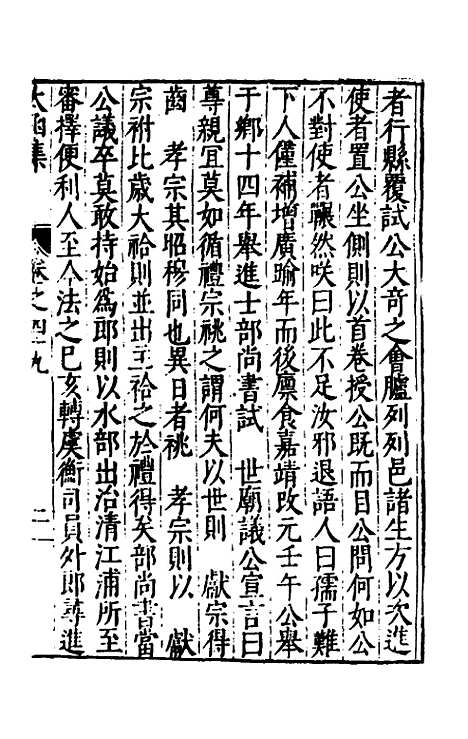 者行縣覆試公大奇之會臚列列邑諸生方以次進
使者置公坐側則以首卷授公既而目公問何如公
不對使者囅然咲曰此不足汝邪退語人曰孺子難
下人僅補增廣踰年而後廩食嘉靖改元壬午公舉
于鄉十四年舉進士部尚書試 世廟議公宣言曰
尊親冝莫如循禮宗祧之謂何夫以世則 獻宗得
齒 孝宗其昭穆同也異日者祧 孝宗則以 獻
宗祔比歲大祫則並出主祫之於禮得矣部尚書當
公議卒莫敢持始爲郎則以水部出治清江浦所至
審擇便利人至今法之已亥轉虞衡司員外郎尋進
太函集 卷之四十九 二